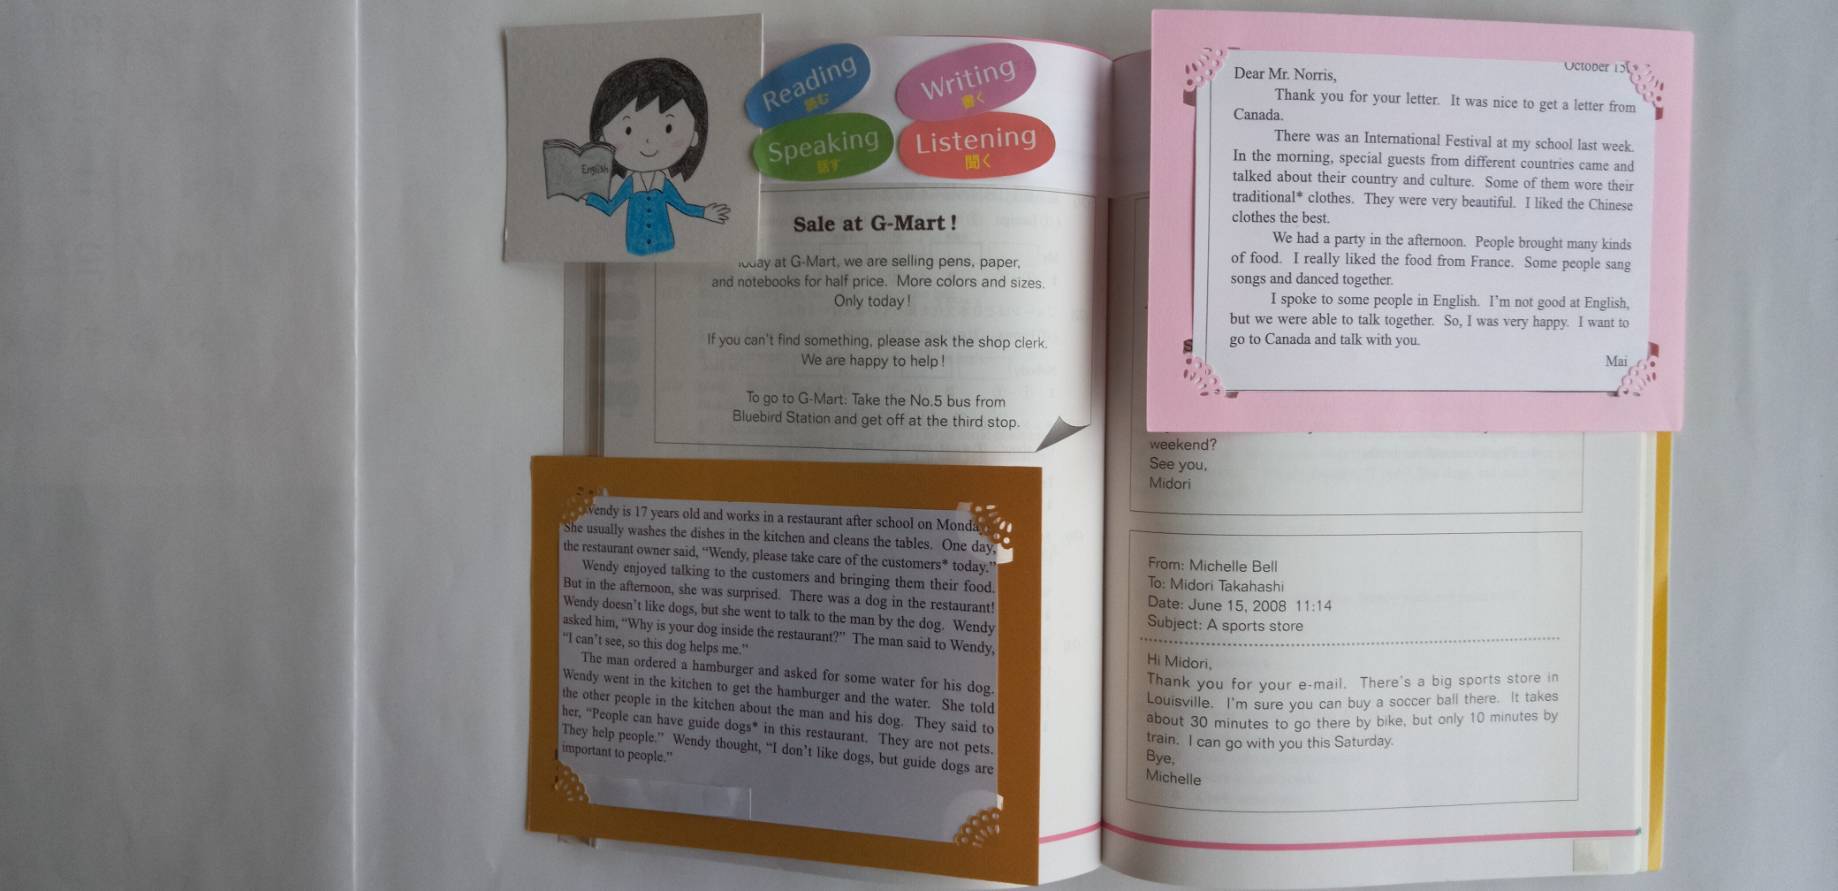 English
Reading
読む
Writing
書く
Speaking
話す
Listening
聞く
Sale at G-Mart !
at G-Mart, we are selling pens, paper,
and notebooks for half price. More colors and sizes.
Only today !
If you can't find something, please ask the shop clerk.
We are happy to help !
To go to G-Mart: Take the No.5 bus from
Bluebird Station and get off at the third stop.
Wendy is 17 years old and works in a restaurant after school on
She usually washes the dishes in the kitchen and cleans the tables. One day,
the restaurant owner said, “Wendy, please take care of the customers* today.”
Wendy enjoyed talking to the customers and bringing them their food.
But in the afternoon, she was surprised. There was a dog in the restaurant!
Wendy doesn't like dogs, but she went to talk to the man by the dog. Wendy
asked him, “Why is your dog inside the restaurant?” The man said to Wendy,
“I can't see, so this dog helps me.”
The man ordered a hamburger and asked for some water for his dog.
Wendy went in the kitchen to get the hamburger and the water. She told
the other people in the kitchen about the man and his dog. They said to
her, “People can have guide dogs* in this restaurant. They are not pets.
They help people.” Wendy thought, “I don't like dogs, but guide dogs are
important to people.”
October
Dear Mr. Norris,
Thank you for your letter. It was nice to get a letter from
Canada.
There was an International Festival at my school last week.
In the morning, special guests from different countries came and
talked about their country and culture. Some of them wore their
traditional* clothes. They were very beautiful. I liked the Chinese
clothes the best.
We had a party in the afternoon. People brought many kinds
of food. I really liked the food from France. Some people sang
songs and danced together.
I spoke to some people in English. I'm not good at English,
but we were able to talk together. So, I was very happy. I want to
go to Canada and talk with you.
Mai
weekend?
See you,
Midori
From: Michelle Bell
To: Midori Takahashi
Date: June 15, 2008 11:14
Subject: A sports store
Hi Midori,
Thank you for your e-mail. There's a big sports store in
Louisville. I'm sure you can buy a soccer ball there. It takes
about 30 minutes to go there by bike, but only 10 minutes by
train. I can go with you this Saturday.
Bye,
Michelle